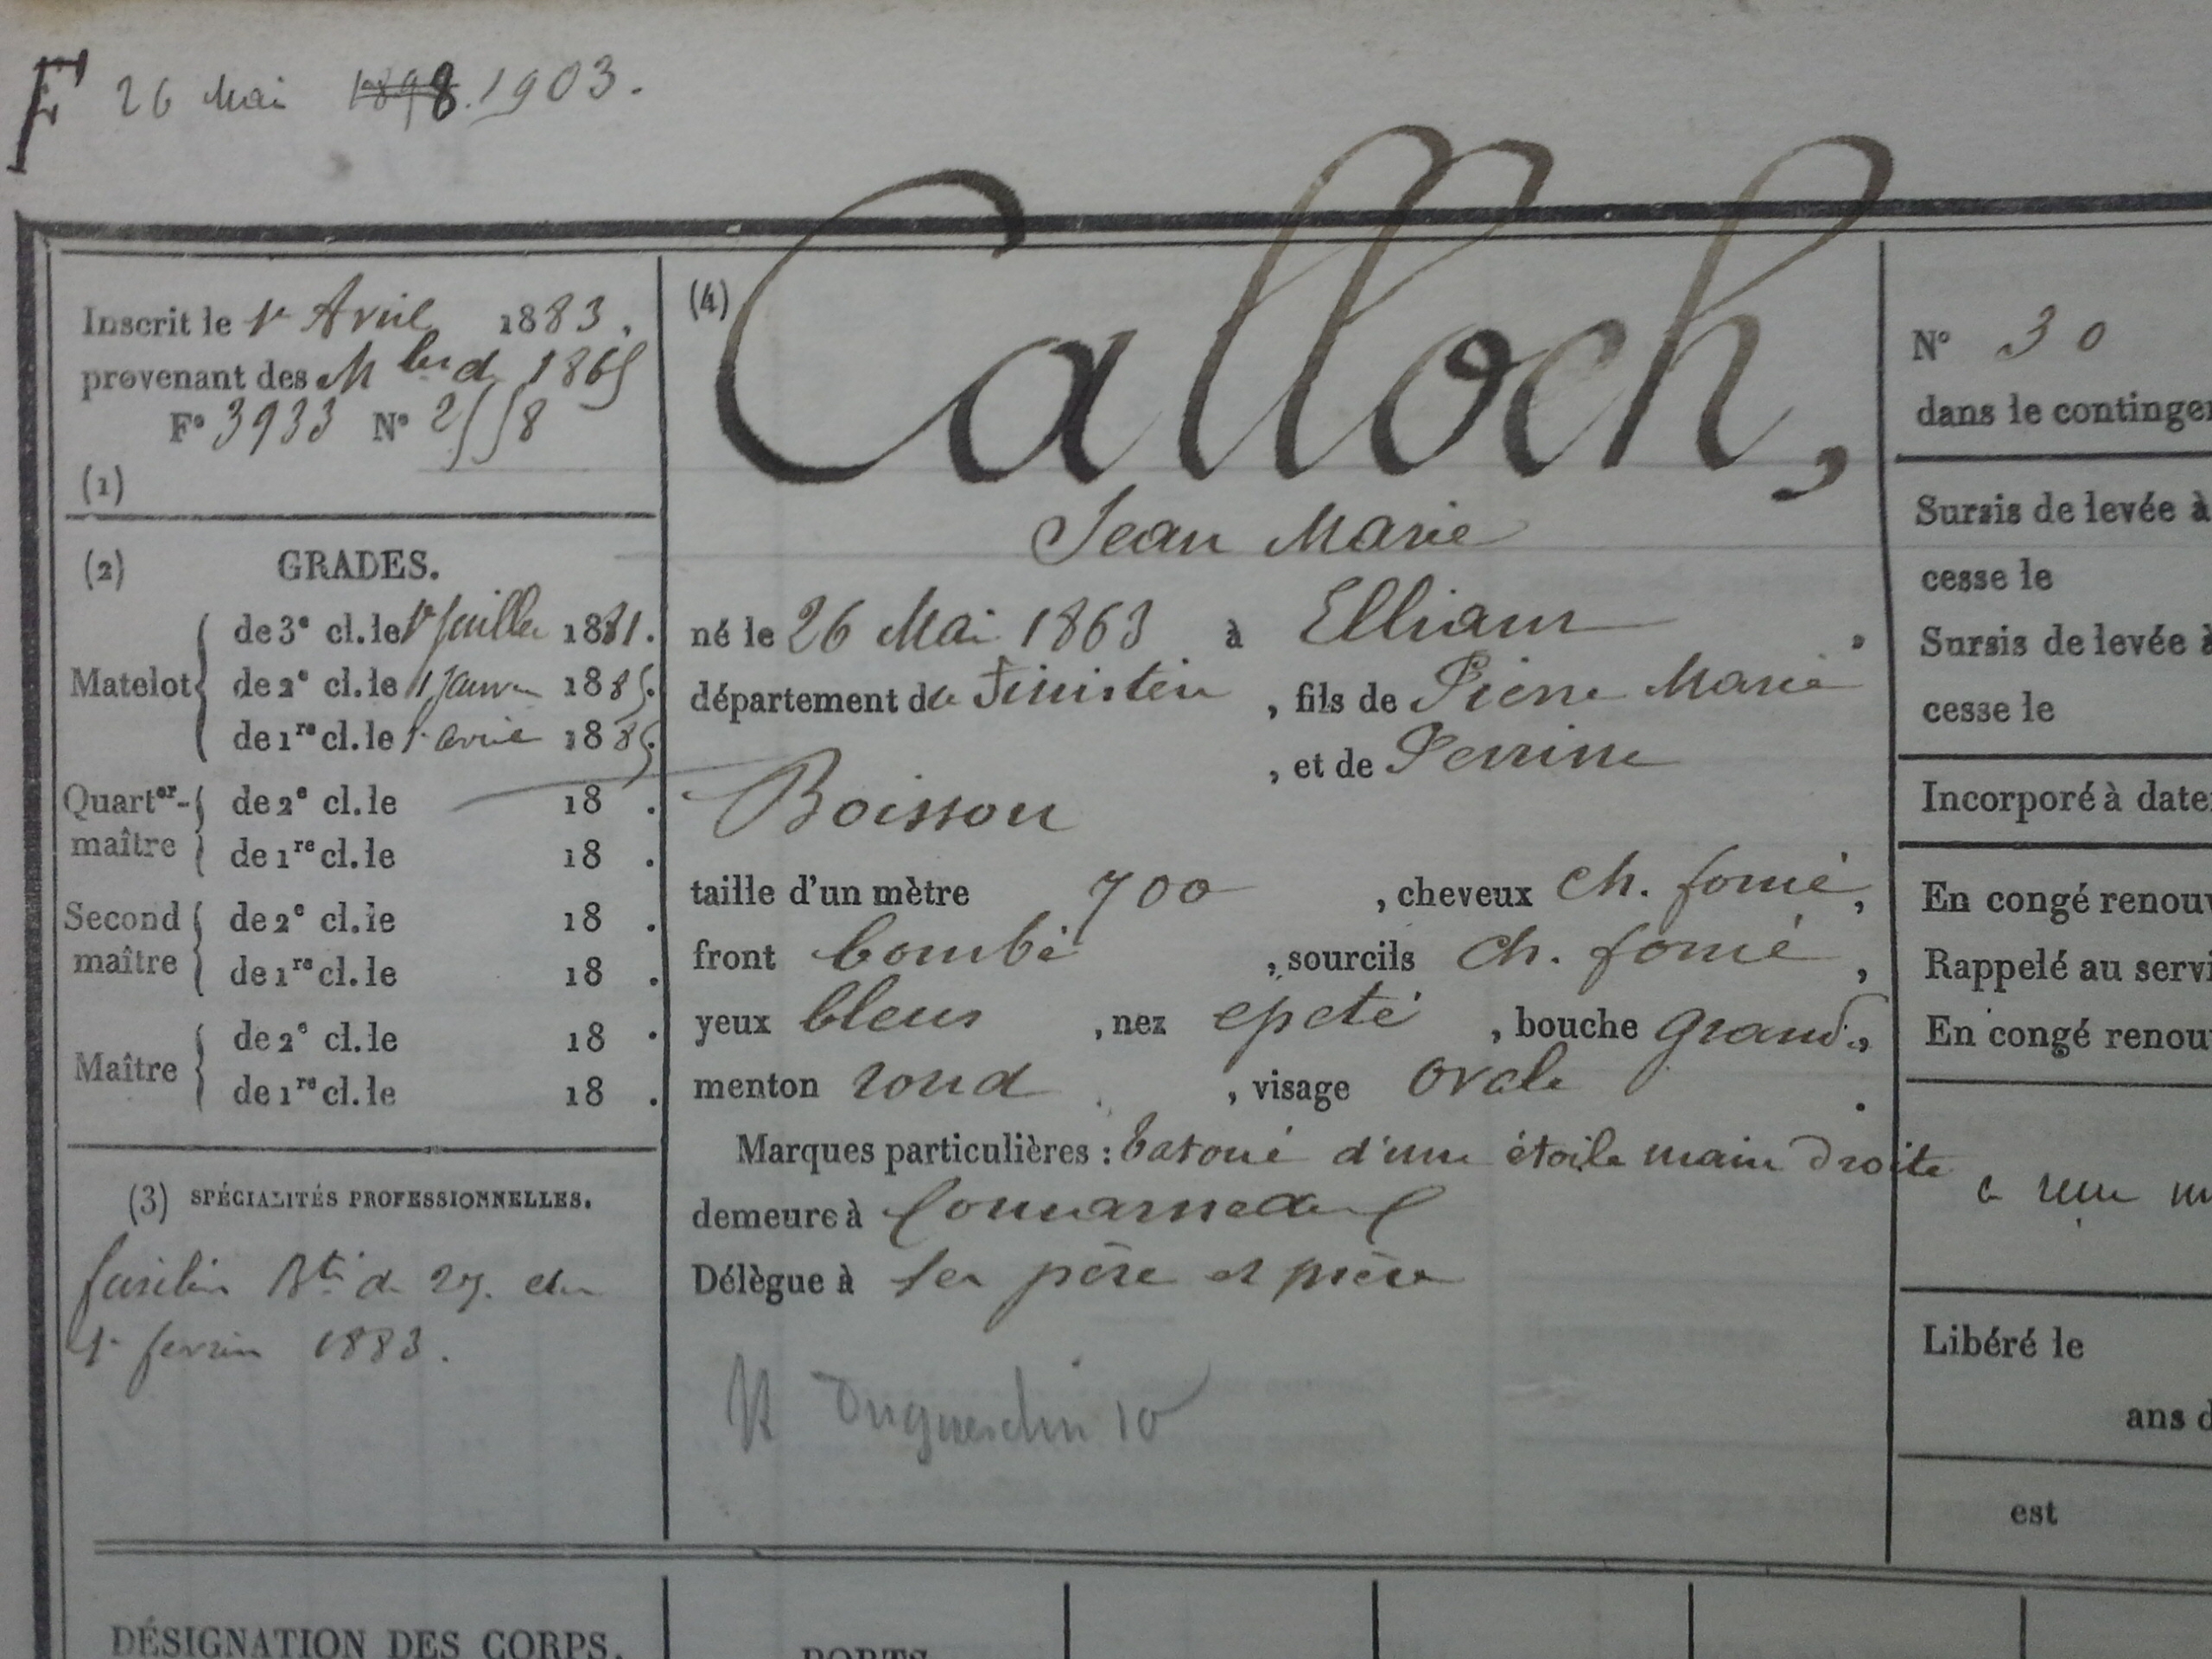 F 26 Mai 1898. 1903.
Inscrit le 1r Avril 1883,
provenant des M 1865
F° 3933 N° 2558
(1)
(2) GRADES.
Matelot
de 3e cl. le 1r Juillet 1881.
de 2e cl. le 1 Janvr 1885.
de 1re cl. le 1r avril 1885.
Quartier-maître
de 2e cl. le 18 .
de 1re cl. le 18 .
Second maître
de 2e cl. le 18 .
de 1re cl. le 18 .
Maître
de 2e cl. le 18 .
de 1re cl. le 18 .
(3) SPÉCIALITÉS PROFESSIONNELLES.
fusilier Bté de 2e. du
1r fevrier 1883.
(4) Calloch,
Jean Marie
né le 26 Mai 1863 à Elliant .
département du Finistère , fils de Pierre Marie
, et de Perrine
Boisson
taille d'un mètre 700 , cheveux ch. foncé,
front bombé , sourcils ch. foncé ,
yeux bleus , nez epaté , bouche grande,
menton rond , visage ovale .
Marques particulières : tatoué d'une étoile main droite
demeure à Concarneau
Délègue à ses père et mère
Duguesclin 10
N° 30
dans le continge
Sursis de levée à
cesse le
Sursis de levée à
cesse le
Incorporé à date
En congé renou
Rappelé au servi
En congé renou
Libéré le
ans d
est
DÉSIGNATION DES CORPS.
PORTS